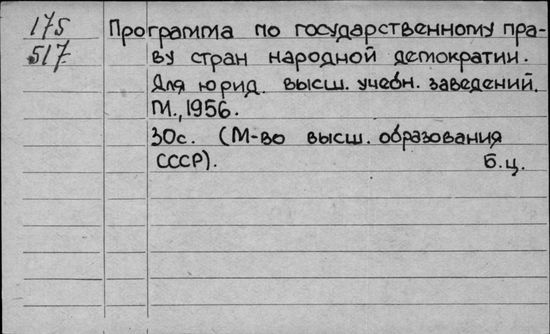 175
517
Программа по государственному пра-
ву стран народной демократии.
Для юрид. высш. учебн. заведений.
М., 1956.
30с. (М-во высш. образования
СССР). Б.ц.